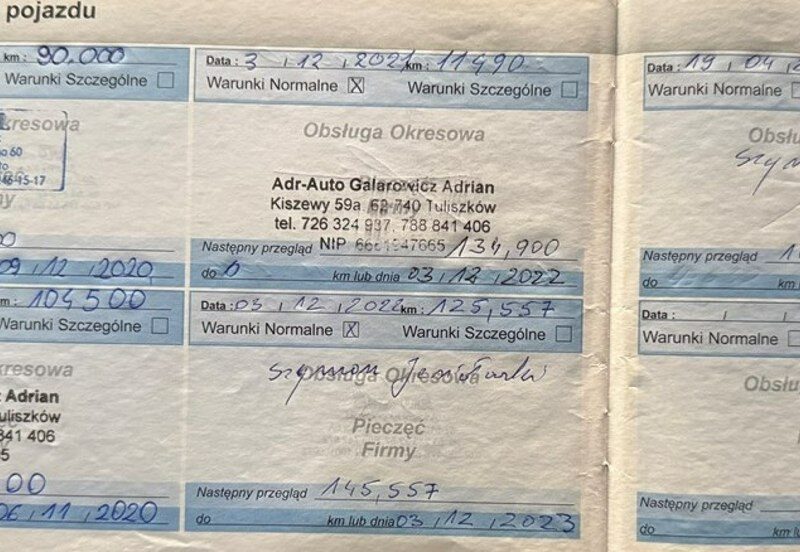 pojazdu
km: 90.000
Warunki Szczególne
kresowa
60
15-17
09, 12, 2020
104500
Warunki Szczególne
kresowa
Adrian
uliszków
841 406
5
00
06, 11, 2020
Data: 3, 12, 2021 km:
Warunki Normalne X Warunki Szczególne
Obsługa Okresowa
Pieczęć
Firmy
Adr-Auto Galarowicz Adrian
Kiszewy 59a, 62-740 Tuliszków
tel. 726 324 937, 788 841 406
NIP
Następny przegląd 134,900
do km lub dnia 03, 12, 2022
Data: 03, 12, 2022 km: 125,557
Warunki Normalne X Warunki Szczególne
Obsługa Okresowa
Szymon
Pieczęć
Firmy
Następny przegląd 145,557
do km lub dnia 03, 12, 2023
Data: 19, 04,
Warunki Normalne
Obsłu
Następny przegląd
do km
Data: / /
Warunki Normalne
Obsłu
Następny przegląd
do km lu